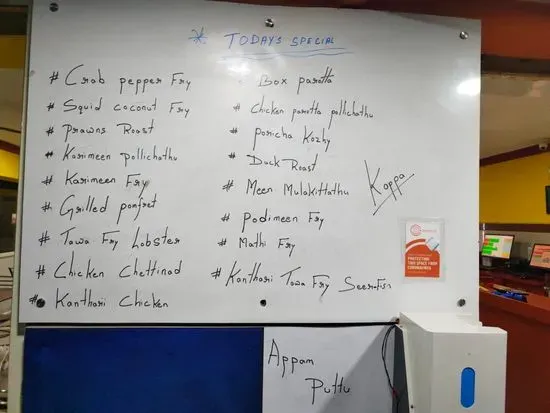 * TODAY'S SPECIAL
# Crab pepper Fry
# Squid coconut Fry
# Prawns Roast
# Karimeen pollichathu
# Karimeen Fry
# Grilled ponfret
# Tawa Fry Lobster
# Chicken Chettinad
# Kanthari Chicken
Box parotta
# Chicken parotta pollichathu
# poricha Kozhy
# Duck Roast
# Meen Mulakittathu
# podimeen Fry
# Mathi Fry
# Kanthari Tawa Fry Seer-Fish
Kappa
PROTECTING
THIS SPACE FROM
CORONAVIRUS
Appam
Puttu